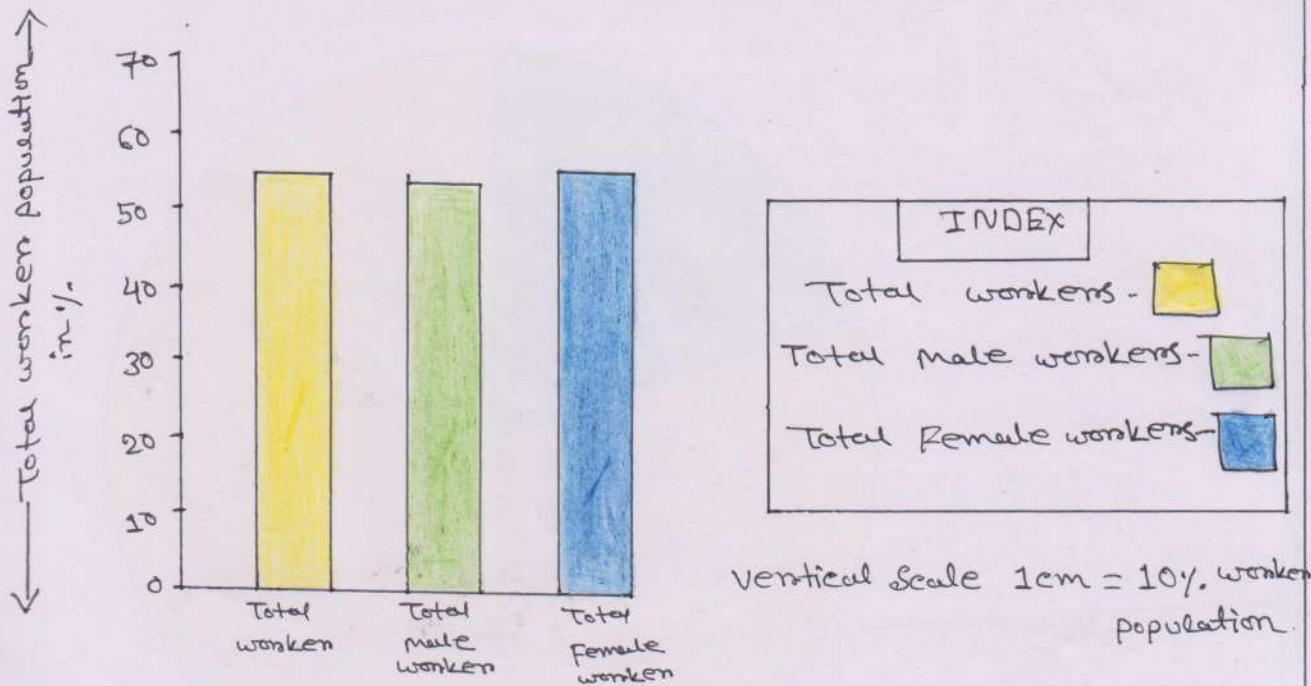 Total worker population
in %
70
60
50
40
30
20
10
0
Total
worker
Total
male
worker
Total
Female
worker
INDEX
Total workers-
Total Male workers-
Total Female workers-
Vertical Scale 1cm = 10%. worker
population.